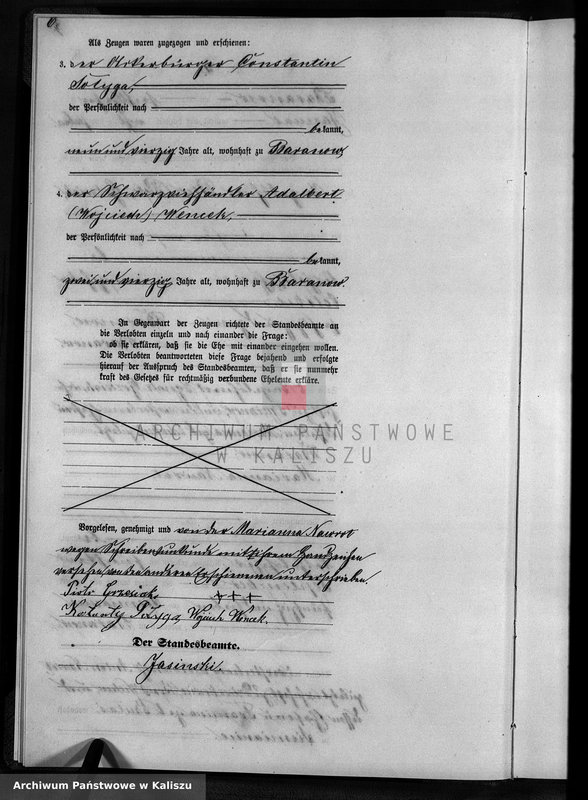 Als Zeugen waren zugezogen und erschienen:
3. der Ackerbürger Constantin
der Persönlichkeit nach
bekannt,
neun und vierzig Jahre alt, wohnhaft zu Baranow
4. der Schwarzviehhändler Adalbert
(Wojciech) Wencek,
der Persönlichkeit nach
bekannt,
zwei und vierzig Jahre alt, wohnhaft zu Baranow.
In Gegenwart der Zeugen richtete der Standesbeamte an
die Verlobten einzeln und nach einander die Frage:
ob sie erklären, daß sie die Ehe mit einander eingehen wollen.
Die Verlobten beantworteten diese Frage bejahend und erfolgte
hierauf der Ausspruch des Standesbeamten, daß er sie nunmehr
kraft des Gesetzes für rechtmäßig verbundene Eheleute erkläre.
ARCHIWUM PAŃSTWOWE
W KALISZU
Vorgelesen, genehmigt und von der Marianna Nawrot
wegen Schreibensunkunde mit ihrem Handzeichen
versehen, von den anderen Erschienenen unterschrieben.
Piotr +++
Wojciech Wencek.
Der Standesbeamte.
Jasinski.
Archiwum Państwowe w Kaliszu